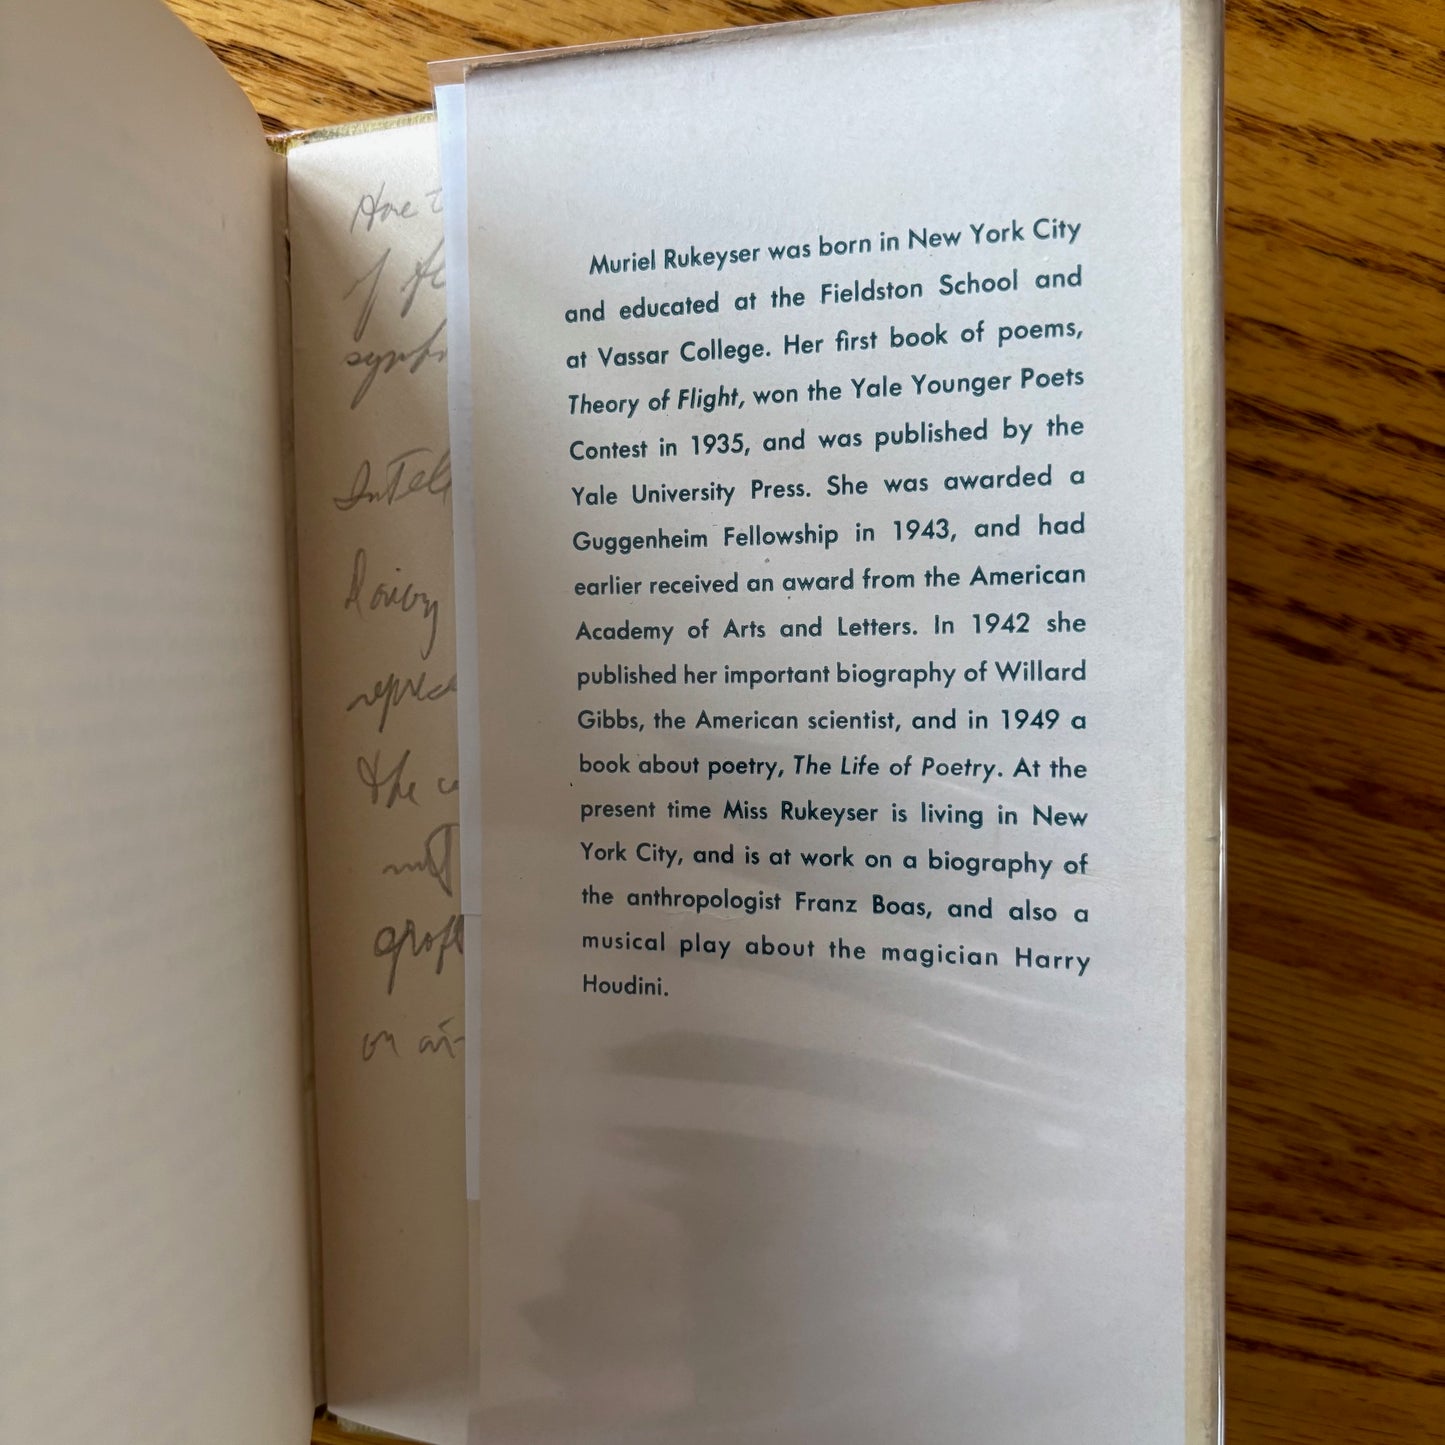 Muriel Rukeyser was born in New York City
and educated at the Fieldston School and
at Vassar College. Her first book of poems,
Theory of Flight, won the Yale Younger Poets
Contest in 1935, and was published by the
Yale University Press. She was awarded a
Guggenheim Fellowship in 1943, and had
earlier received an award from the American
Academy of Arts and Letters. In 1942 she
published her important biography of Willard
Gibbs, the American scientist, and in 1949 a
book about poetry, The Life of Poetry. At the
present time Miss Rukeyser is living in New
York City, and is at work on a biography of
the anthropologist Franz Boas, and also a
musical play about the magician Harry
Houdini.